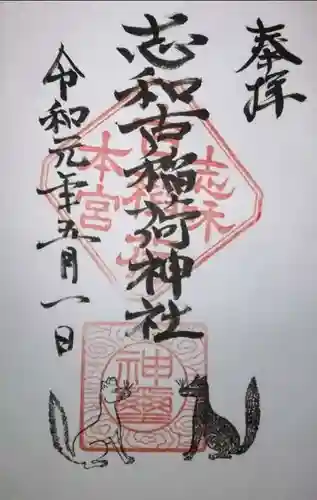 奉拝
志和古稲荷神社
令和元年五月一日
志和
本宮
神璽